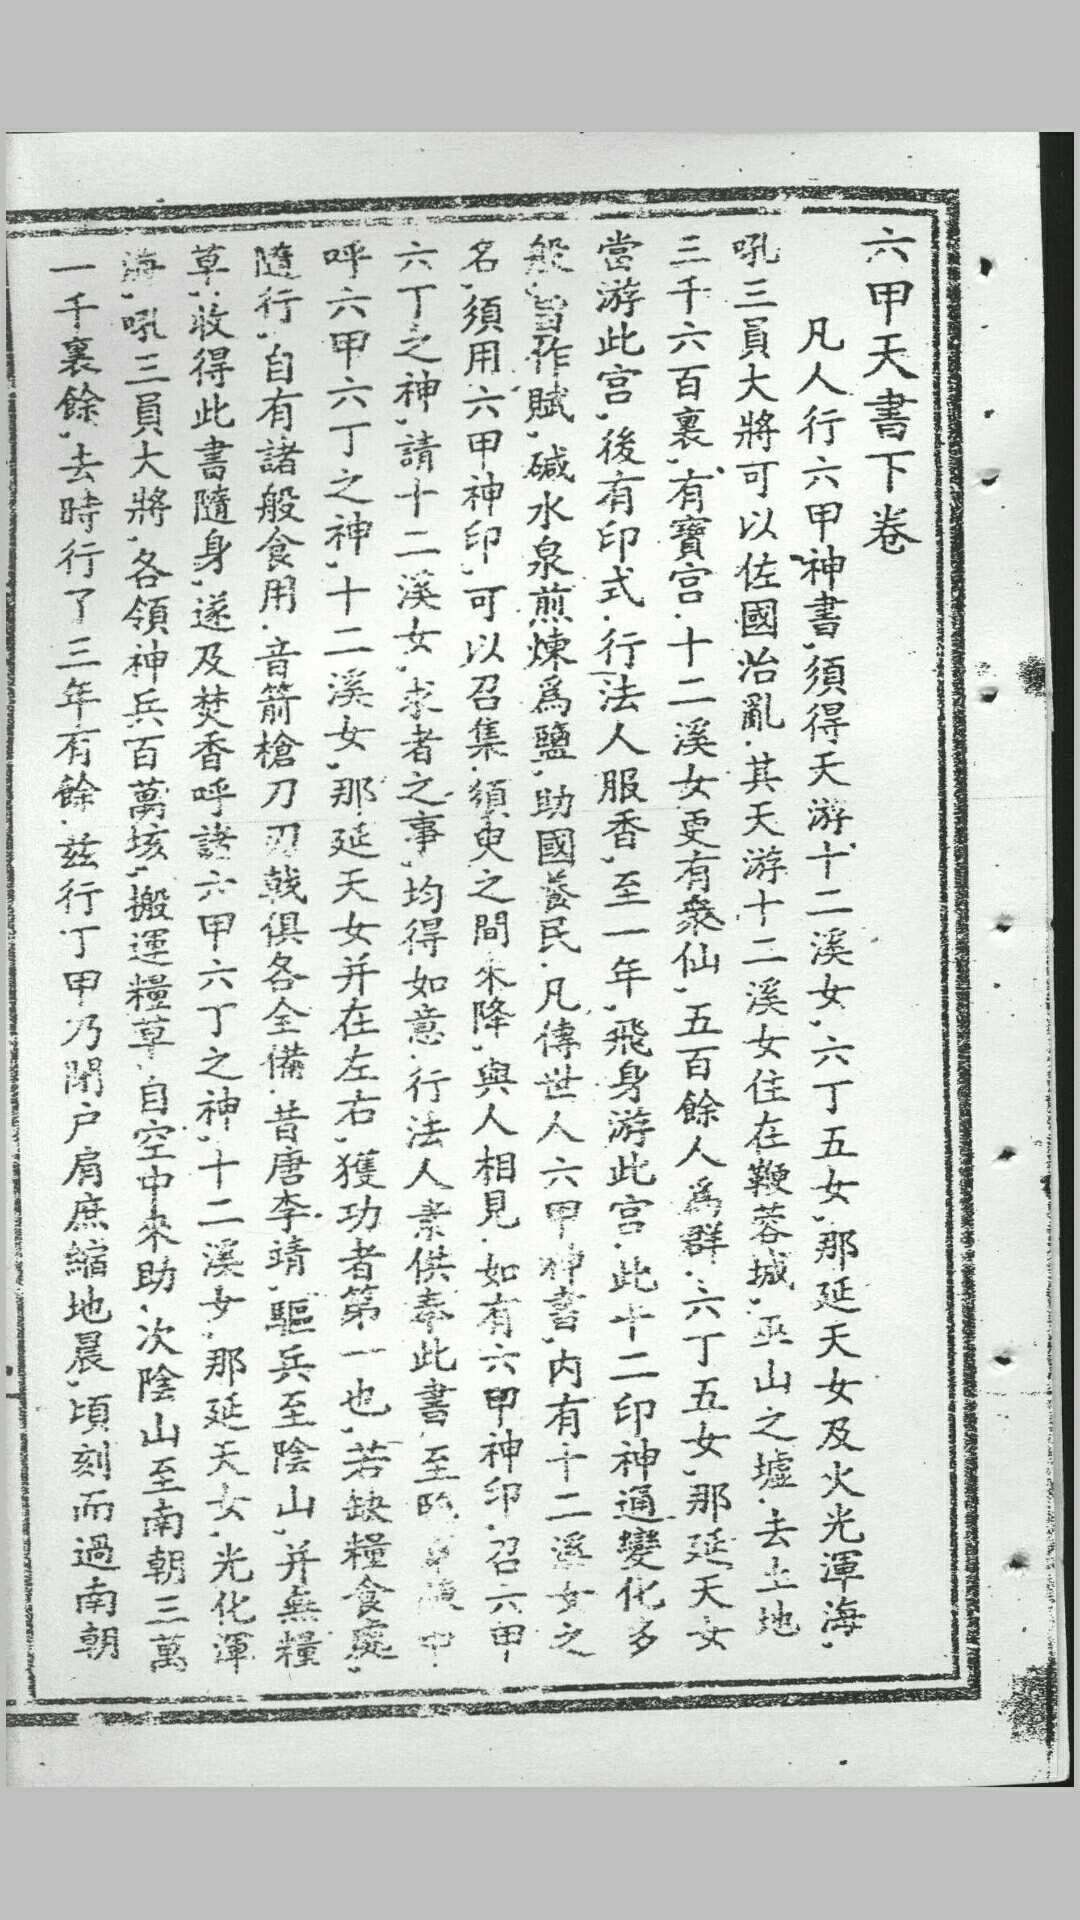 六甲天書下卷
凡人行六甲神書、須得天游十二溪女、六丁五女、那延天女及火光渾海、
吼三員大將可以佐國治亂、其天游十二溪女住在鞭蓉城、巫山之墟、去土地
三千六百裏、有寶宫、十二溪女更有衆仙、五百餘人爲群、六丁五女、那延天女
當游此宫、後有印式、行法人服香、至一年、飛身游此宫、此十二印神通變化多
般、皆作賦、碱水泉煎煉爲鹽、助國養民、凡傳世人六甲神書、内有十二溪女之
名、須用六甲神印、可以召集、須臾之間來降、與人相見、如有六甲神印、召六甲
六丁之神、請十二溪女、求者之事、均得如意、行法人素供奉此書、至中
呼六甲六丁之神、十二溪女、那延天女并在左右、獲功者第一也、若缺糧食處、
隨行、自有諸般食用、音箭槍刀刃戟俱各全備、昔唐李靖、驅兵至陰山、并無糧
草、收得此書隨身、遂及焚香呼諸六甲六丁之神、十二溪女、那延天女、光化渾
海、吼三員大將、各領神兵百萬垓、搬運糧草、自空中來助、次陰山至南朝三萬
一千裏餘、去時行了三年有餘、兹行丁甲乃閉户肩庶縮地晨、頃刻而過南朝